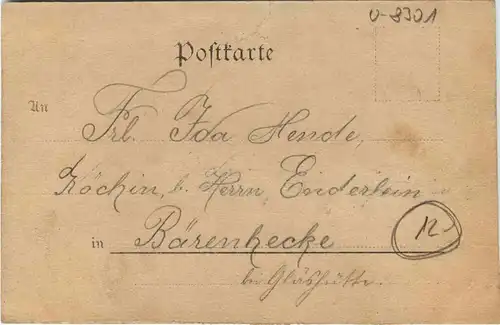 U-8301
Postkarte
An
Frl. Ida Hende,
Köchin, b. Herrn Enderlein
in Bärenhecke
12
bei Glashütte.